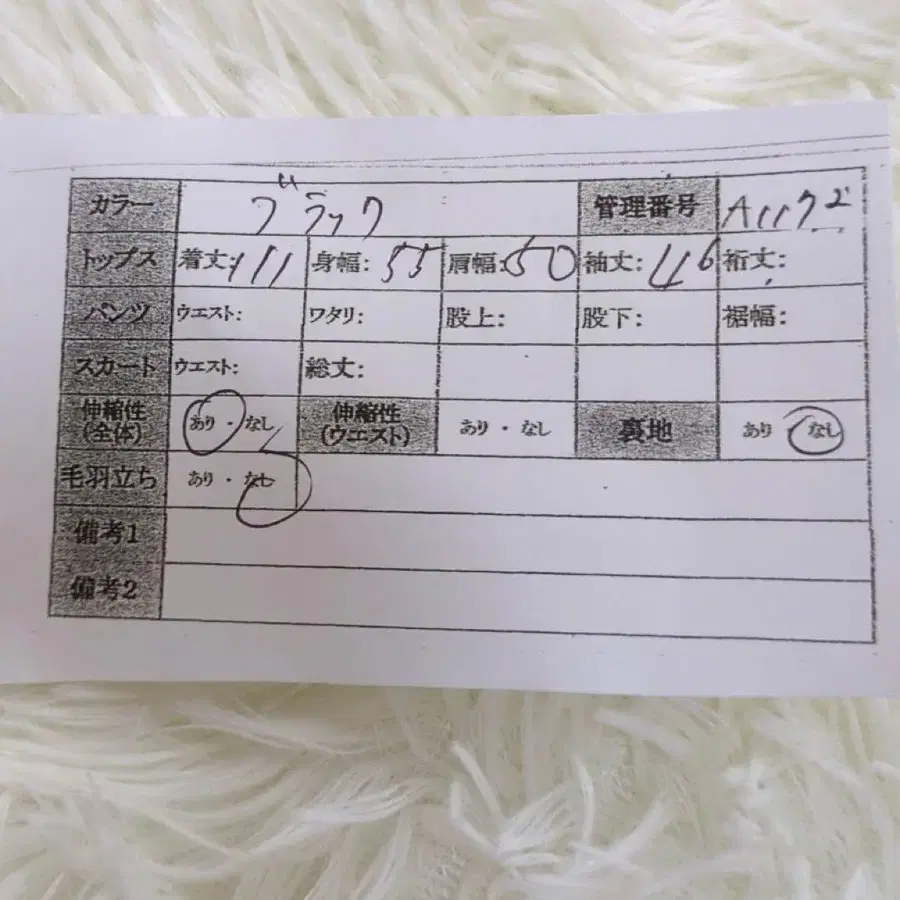 カラー ブラック 管理番号 A1172
トップス 着丈: 111 身幅: 55 肩幅: 50 袖丈: 46 裄丈:
パンツ ウエスト: ワタリ: 股上: 股下: 裾幅:
スカート ウエスト: 総丈:
伸縮性 (全体) あり・なし 伸縮性 (ウエスト) あり・なし 裏地 あり なし
毛羽立ち あり・なし
備考1
備考2